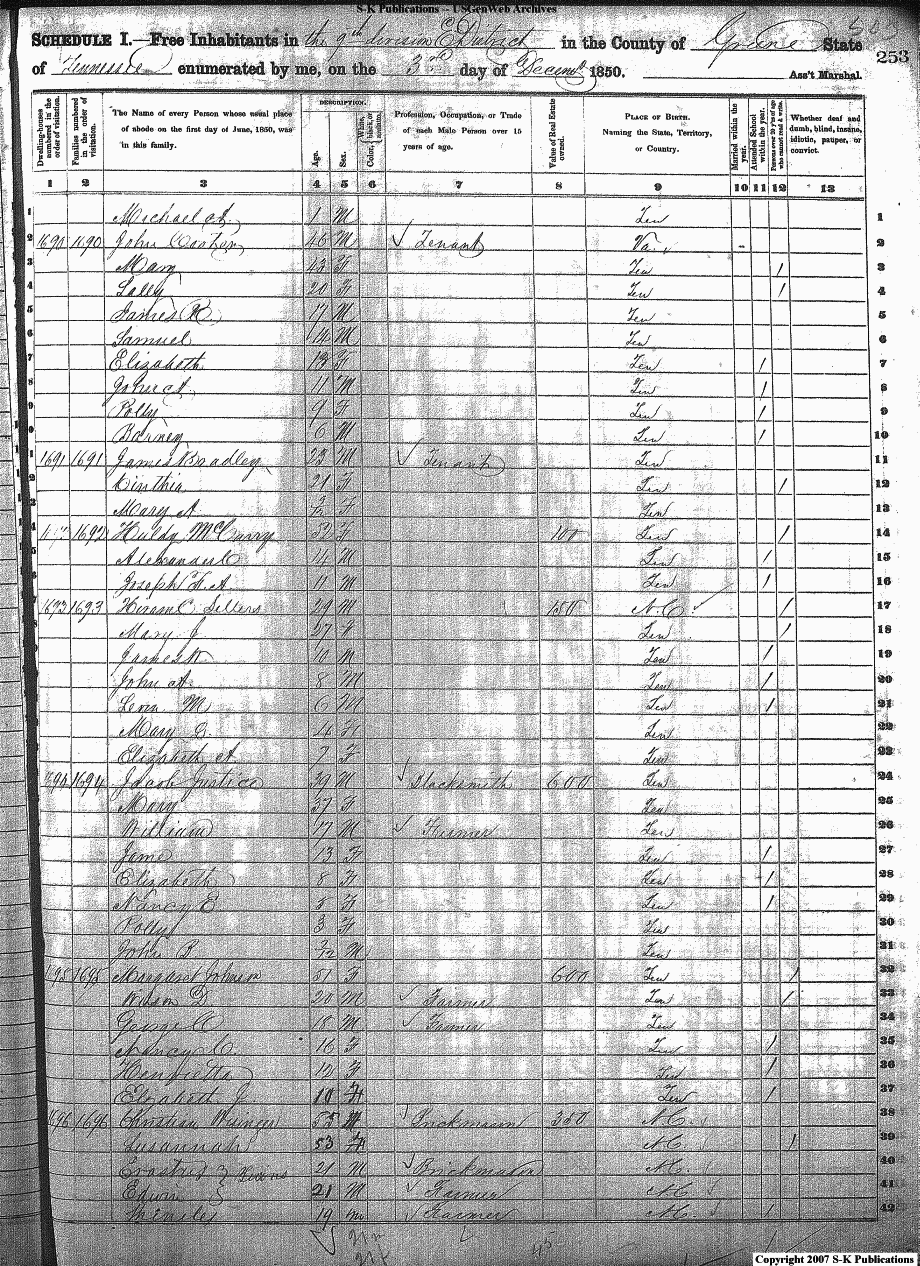 S-K Publications -- USGenWeb Archives
SCHEDULE I.—Free Inhabitants in the 9th division E District in the County of Greene State
253
of Tennessee enumerated by me, on the 3rd day of Decemb 1850. Ass't Marshal.
Dwelling-houses numbered in the order of visitation.
Families numbered in the order of visitation.
The Name of every Person whose usual place of abode on the first day of June, 1850, was in this family.
DESCRIPTION.
Age.
Sex.
Color, White, black, or mulatto.
Profession, Occupation, or Trade of each Male Person over 15 years of age.
Value of Real Estate owned.
PLACE OF BIRTH. Naming the State, Territory, or Country.
Married within the year.
Attended School within the year.
Persons over 20 y'rs of age who cannot read & write.
Whether deaf and dumb, blind, insane, idiotic, pauper, or convict.
1 2 3 4 5 6 7 8 9 10 11 12 13
1 Michael A. 1 M Ten 1
2 1690 1690 John 46 M Tenant Va 2
3 Mary 43 F Ten / 3
4 Sally 20 F Ten / 4
5 James R 17 M Ten 5
6 Samuel 14 M Ten 6
7 Elizabeth 13 F Ten / 7
8 John A 11 M Ten / 8
9 Polly 9 F Ten / 9
10 Barney 6 M Ten / 10
11 1691 1691 James Bradley 23 M Tenant Ten 11
12 Cinthia 21 F Ten / 12
13 Mary A F Ten 13
14 1692 Huldy McCurry 52 F 100 Ten / 14
15 Alexander C 14 M Ten / 15
16 Joseph F. A 11 M Ten / 16
17 1693 1693 Hiram C Sellers 29 M 150 N.C. / 17
18 Mary J 27 F Ten / 18
19 James W 10 M Ten / 19
20 John A. 8 M Ten / 20
21 Levi M 6 M Ten / 21
22 Mary 4 F Ten 22
23 Elizabeth A F Ten 23
24 1694 1694 Jacob Justice 39 M Blacksmith 600 Ten 24
25 Mary 37 F Ten 25
26 William 17 M Farmer Ten 26
27 Jane 13 F Ten / 27
28 Elizabeth 8 F Ten / 28
29 Nancy E 5 F Ten / 29
30 Polly 3 F Ten 30
31 John /12 M Ten 31
32 1695 1695 Margaret Johnson 51 F 600 Ten / 32
33 Wilson D 20 M Farmer Ten / 33
34 George C 18 M Farmer Ten 34
35 Nancy C. 16 F Ten / 35
36 Henrietta 12 F Ten / 36
37 Elizabeth J. 10 F Ten / 37
38 1696 1696 Christian 55 M Brickmason 350 N.C. 38
39 Susannah 53 F N.C. / 39
40 Erastus 21 M Brickmason N.C. 40
41 Edwin 21 M Farmer N.C. 41
42 19 m Farmer N.C. / 42
Copyright 2007 S-K Publications